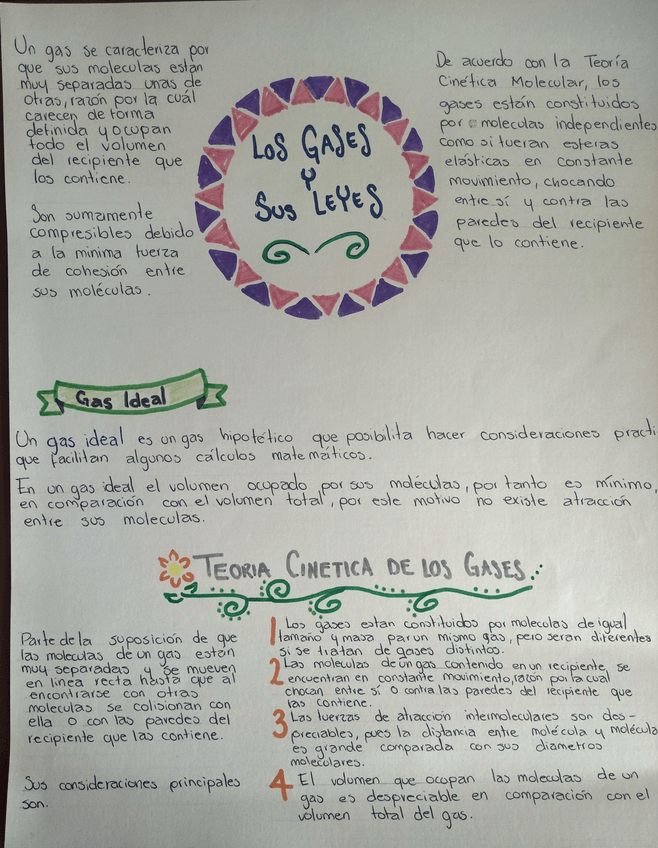 Un gas se caracteriza por
que sus moleculas estan
muy separadas unas de
otras, razón por la cuál
carecen de forma
definida y ocupan
todo el volumen
del recipiente que
los contiene.
Son sumamente
compresibles debido
a la minima fuerza
de cohesión entre
sus moléculas.
LOS GASES
Y
SUS LEYES
De acuerdo con la Teoría
Cinética Molecular, los
gases están constituidos
por moleculas independientes
como si fueran esferas
elásticas en constante
movimiento, chocando
entre sí y contra las
paredes del recipiente
que lo contiene.
Gas Ideal
Un gas ideal es un gas hipotético que posibilita hacer consideraciones practi
que facilitan algunos cálculos matemáticos.
En un gas ideal el volumen ocupado por sus moléculas, por tanto es mínimo,
en comparación con el volumen total, por este motivo no existe atracción
entre sus moleculas.
TEORIA CINETICA DE LOS GASES
Parte de la suposición de que
las moleculas de un gas estan
muy separadas y se mueven
en linea recta hasta que al
encontrarse con otras
moleculas se colisionan con
ella o con las paredes del
recipiente que las contiene.
Sus consideraciones principales
son.
1 Los gases estan constituidos por moleculas de igual
tamaño y masa par un mismo gas, pero seran diferentes
si se tratan de gases distintos.
2 Las moleculas de un gas contenido en un recipiente, se
encuentran en constante movimiento, razón por la cual
chocan entre sí o contra las paredes del recipiente que
las contiene.
3 Las fuerzas de atracción intermoleculares son des-
preciables, pues la distancia entre molécula y molécula
es grande comparada con sus diametros
moleculares.
4 El volumen que ocupan las moleculas de un
gas es despreciable en comparación con el
volumen total del gas.